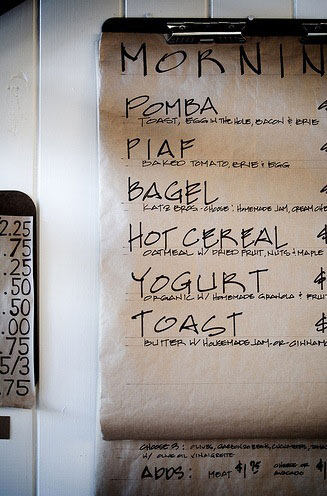 MORNIN
POMBA
TOAST, EGG IN THE HOLE, BACON & BRIE
PIAF
BAKED TOMATO, BRIE & EGG
BAGEL
KATZ BROS - CHOOSE: HOMEMADE JAM, CREAM CHE
HOT CEREAL
OATMEAL W/ DRIED FRUIT, NUTS & MAPLE
YOGURT $
ORGANIC W/ HOMEMADE GRANOLA & FRUI
TOAST $
BUTTER W/ HOUSEMADE JAM -OR- CINNAM
CHOOSE 3: OLIVES, GARBONZO BEANS, CUCUMBERS,
W/ OLIVE OIL VINAIGRETTE
ADDS: MEAT $1.75 CHEESE OR AVOCADO
2.25
.75
.25
.50
.50
.00
.75
5/3
.75